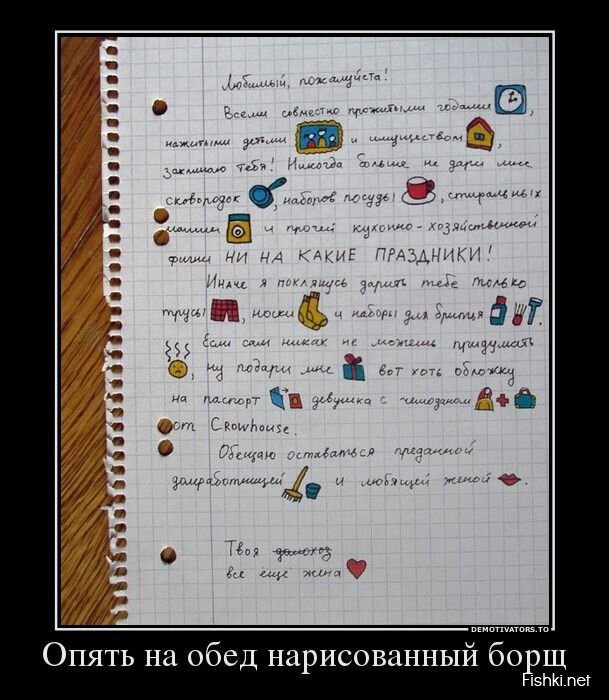 Любимый, пожалуйста!
Всеми совместно прожитыми годами,
нажитыми детьми и имуществом,
заклинаю тебя! Никогда больше не дари мне
сковородок, наборов посуды, стиральных
машин и прочей кухонно-хозяйственной
фигни НИ НА КАКИЕ ПРАЗДНИКИ!
Иначе я поклянусь дарить тебе только
трусы, носки и наборы для бритья.
Если сам никак не можешь придумать
, ну подари мне вот хоть обложку
на паспорт девушка с чемоданом +
от Crowhouse.
Обещаю оставаться преданной
домработницей и любящей женой.
Твоя домохоз
все ещё жена
DEMOTIVATORS.TO
Опять на обед нарисованный борщ
Fishki.net